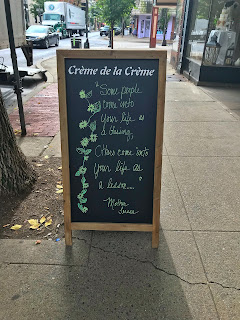 Crème de la Crème
"Some people
come into
your life as
a blessing,
Others come into
your life as
a lesson..."
Mother
Teresa